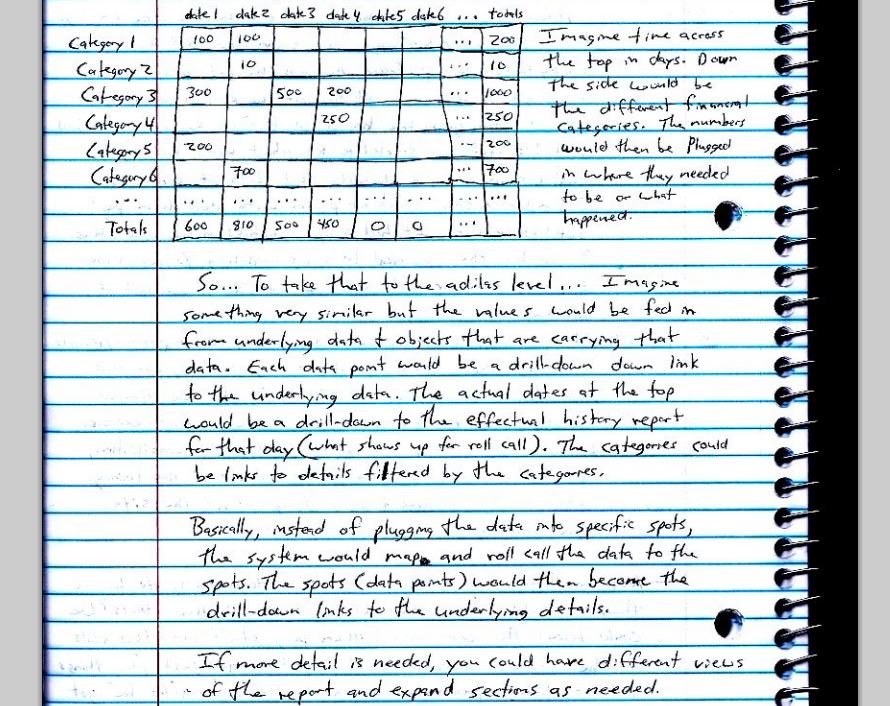 date1 date2 date3 date4 date5 date6 ... totals
Category 1 100 100 ... 200
Category 2 10 ... 10
Category 3 300 500 200 ... 1000
Category 4 250 ... 250
Category 5 200 ... 200
Category 6 700 ... 700
... ... ... ... ... ... ... ... ...
Totals 600 810 500 450 0 0 ...
Imagine time across
the top in days. Down
the side would be
the different financial
categories. The numbers
would then be plugged
in where they needed
to be or what
happened.
So... To take that to the adilas level... Imagine
something very similar but the values would be fed in
from underlying data & objects that are carrying that
data. Each data point would be a drill-down down link
to the underlying data. The actual dates at the top
would be a drill-down to the effectual history report
for that day (what shows up for roll call). The categories could
be links to details filtered by the categories.
Basically, instead of plugging the data into specific spots,
the system would map and roll call the data to the
spots. The spots (data points) would then become the
drill-down links to the underlying details.
If more detail is needed, you could have different views
of the report and expand sections as needed.